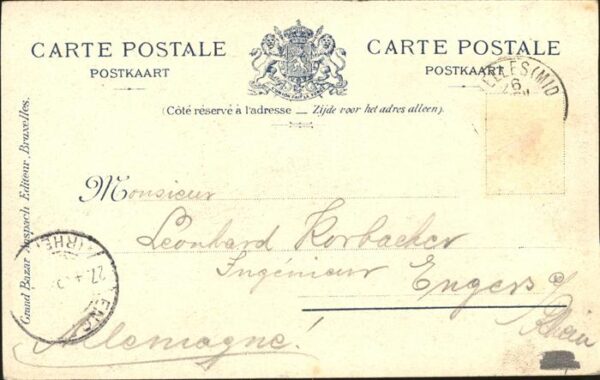 CARTE POSTALE
POSTKAART
CARTE POSTALE
POSTKAART
(Côté réservé à l'adresse — Zijde voor het adres alleen).
Grand Bazar Anspach Editeur, Bruxelles.
Monsieur
Leonhard Korbacher
Ingénieur
Engers a/
Rhein
Allemagne!
27.4